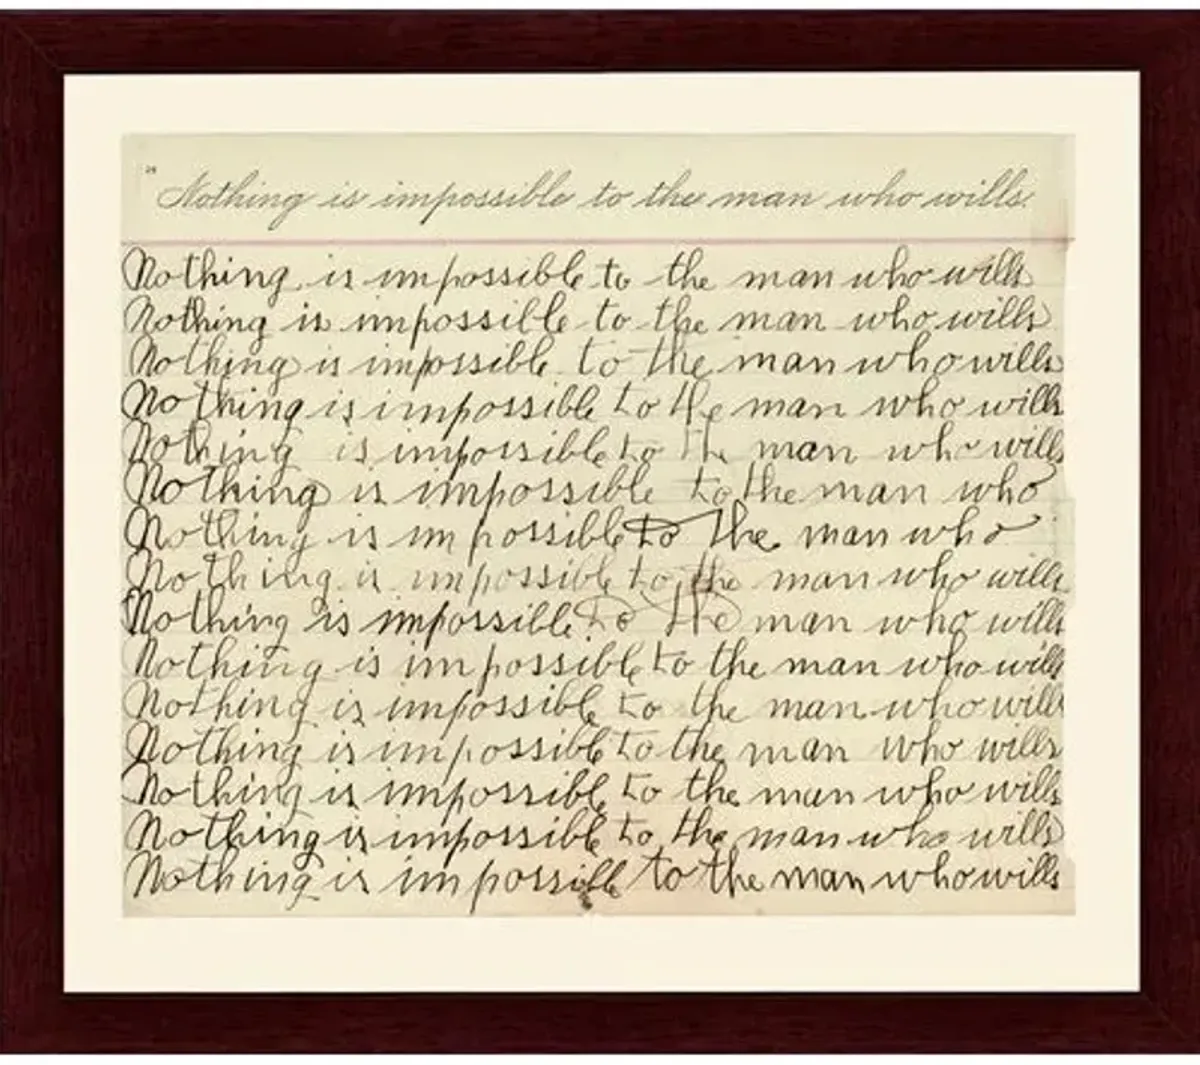 Nothing is impossible to the man who wills.
Nothing is impossible to the man who wills
Nothing is impossible to the man who wills
Nothing is impossible to the man who wills
Nothing is impossible to the man who wills
Nothing is impossible to the man who wills
Nothing is impossible to the man who
Nothing is impossible to the man who
Nothing is impossible to the man who wills
Nothing is impossible to the man who wills
Nothing is impossible to the man who wills
Nothing is impossible to the man who wills
Nothing is impossible to the man who wills
Nothing is impossible to the man who wills
Nothing is impossible to the man who wills
Nothing is impossible to the man who wills